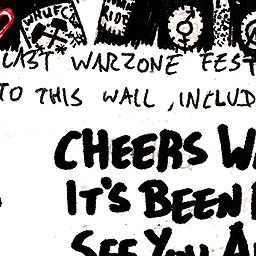 WNUFC
RIOT
LAST WARZONE FEST
TO THIS WALL, INCLUD
CHEERS W
IT'S BEEN
SEE YOU A